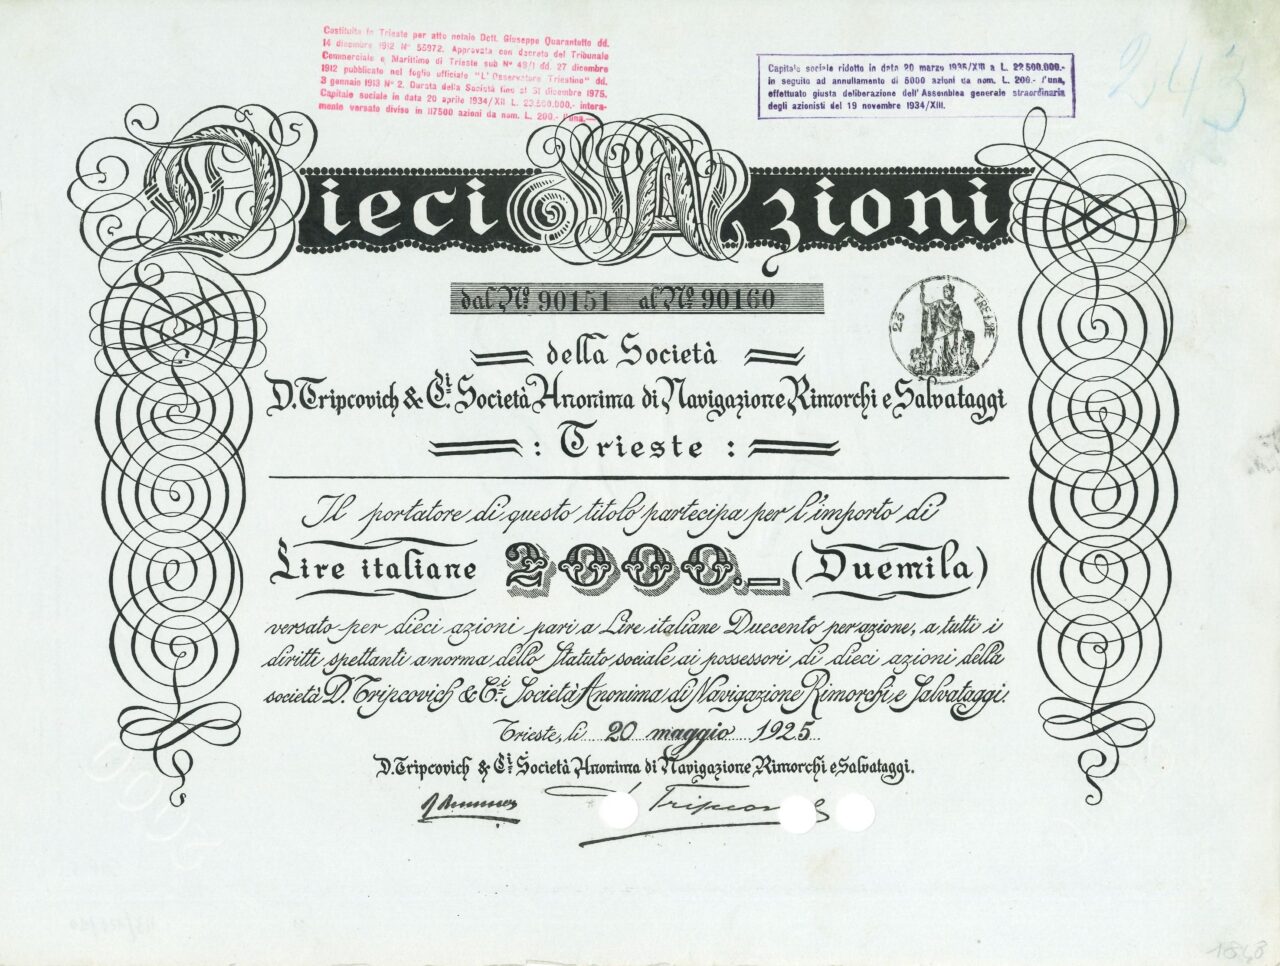 Costituita in Trieste per atto notaio Dott. Giuseppe Quarantotto dd.
14 dicembre 1912 Nº 55972. Approvata con decreto del Tribunale
Commerciale e Marittimo di Trieste sub Nº 49/1 dd. 27 dicembre
1912 pubblicato nel foglio ufficiale "L'Osservatore Triestino" dd.
3 gennaio 1913 Nº 2. Durata della Società fino al 31 dicembre 1975.
Capitale sociale in data 20 aprile 1934/XII L. 23.500.000.- intera-
mente versato diviso in 117500 azioni da nom. L. 200.- l'una.—
Capitale sociale ridotto in data 20 marzo 1935/XIII a L. 22.500.000.-
in seguito ad annullamento di 5000 azioni da nom. L. 200.- l'una,
effettuato giusta deliberazione dell'Assemblea generale straordinaria
degli azionisti del 19 novembre 1934/XIII.
243
Dieci Azioni
dal Nº 90151 al Nº 90160
della Società
D. Tripcovich & Ci. Società Anonima di Navigazione Rimorchi e Salvataggi
: Trieste :
Il portatore di questo titolo partecipa per l'importo di
Lire italiane 2000.— (Duemila)
versato per dieci azioni pari a Lire italiane Duecento per azione, a tutti i
diritti spettanti a norma dello Statuto sociale ai possessori di dieci azioni della
società D. Tripcovich & Ci. Società Anonima di Navigazione Rimorchi e Salvataggi.
Trieste, li 20 maggio 1925
D. Tripcovich & Ci. Società Anonima di Navigazione Rimorchi e Salvataggi.